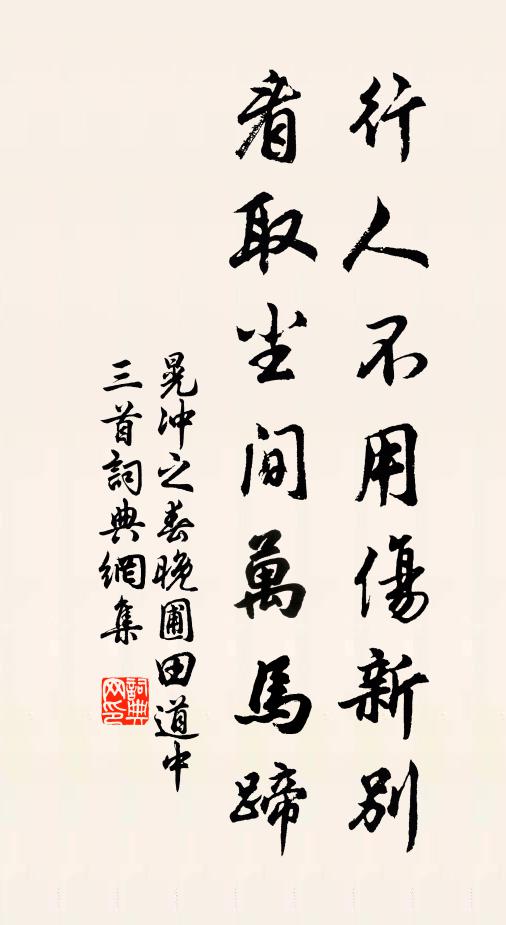 行人不用傷新別
看取尘間萬馬蹄
晁冲之春晚圃田道中
三首詞典網集
詞典
网印